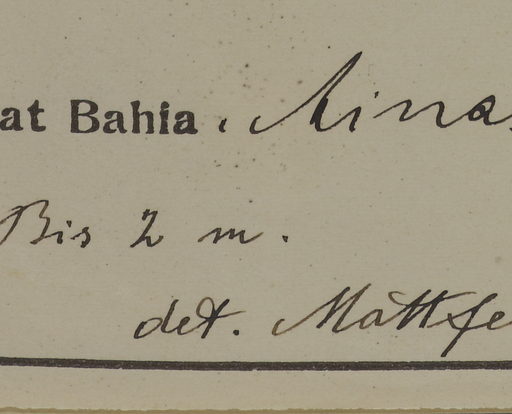 at Bahia. Minas
Bis 2 m.
det. Mattfe